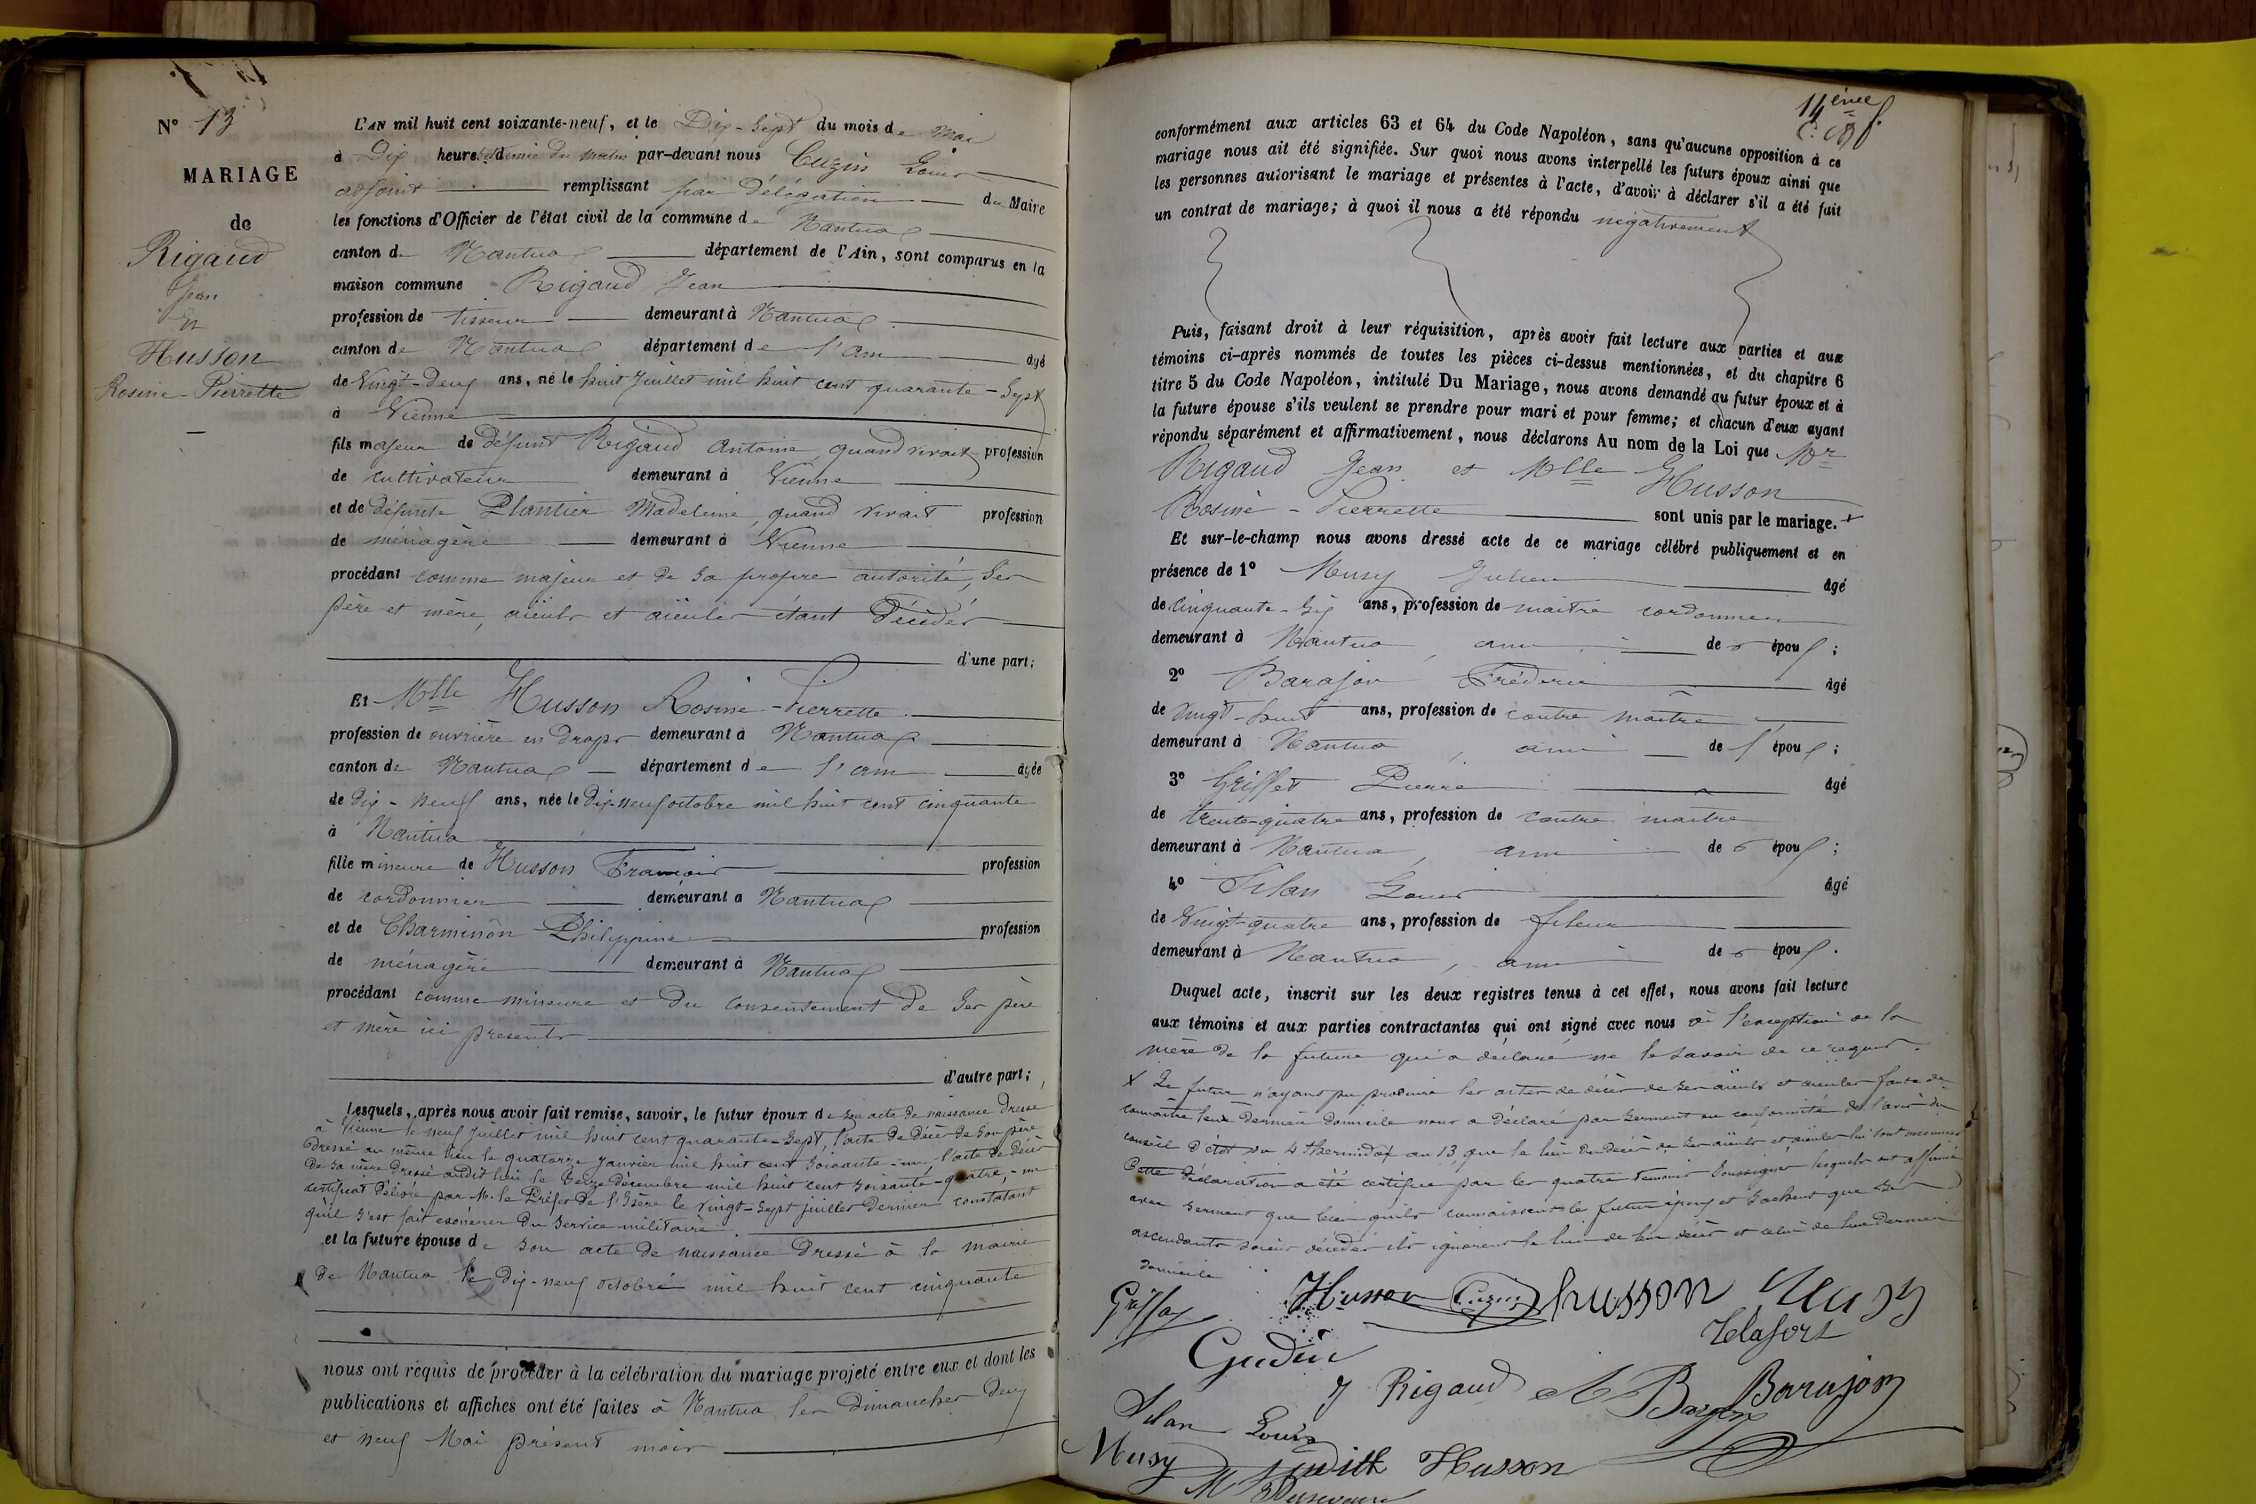 N° 13
MARIAGE
de
Rigaud
Jean
et
Husson
Rosine-Pierrette
L'AN mil huit cent soixante-neuf, et le Dix-Sept du mois de Mai
à Dix heures et demie du matin par-devant nous Cuzin Louis
adjoint remplissant par délégation du Maire
les fonctions d'Officier de l'état civil de la commune de Nantua
canton de Nantua département de l'Ain, sont comparus en la
maison commune Rigaud Jean
profession de tisseur demeurant à Nantua
canton de Nantua département de l'ain âgé
de Vingt-Deux ans, né le huit Juillet mil huit cent quarante-Sept
à Vienne
fils majeur de défunt Rigaud Antoine, quand vivait profession
de cultivateur demeurant à Vienne
et de défunte Plantier Madeleine, quand vivait profession
de ménagère demeurant à Vienne
procédant comme majeur et de sa propre autorité, ses
père et mère, aïeuls et aïeules étant Décédés
d'une part;
Et Mlle Husson Rosine-Pierrette
profession de ouvrière en draps demeurant à Nantua
canton de Nantua département de l'ain âgée
de dix-neuf ans, née le dix-neuf octobre mil huit cent cinquante
à Nantua
fille mineure de Husson François profession
de cordonnier demeurant à Nantua
et de Charminon Philippine profession
de ménagère demeurant à Nantua
procédant comme mineure et du consentement de ses père
et mère ici présents
d'autre part;
Lesquels, après nous avoir fait remise, savoir, le futur époux de son acte de naissance dressé
à Vienne le neuf Juillet mil huit cent quarante-Sept, l'acte de décès de son père
dressé au même lieu le quatorze janvier mil huit cent soixante-un, l'acte de décès
de sa mère dressé audit lieu le treize décembre mil huit cent soixante-quatre, un
certificat délivré par Mr le Préfet de l'Isère le vingt-Sept juillet dernier constatant
qu'il s'est fait exonérer du service militaire
et la future épouse de son acte de naissance dressé à la mairie
de Nantua le dix-neuf octobre mil huit cent cinquante
nous ont requis de procéder à la célébration du mariage projeté entre eux et dont les
publications et affiches ont été faites à Nantua les Dimanches deux
et neuf Mai présent mois
14ème
conformément aux articles 63 et 64 du Code Napoléon, sans qu'aucune opposition à ce
mariage nous ait été signifiée. Sur quoi nous avons interpellé les futurs époux ainsi que
les personnes autorisant le mariage et présentes à l'acte, d'avoir à déclarer s'il a été fait
un contrat de mariage; à quoi il nous a été répondu négativement
Puis, faisant droit à leur réquisition, après avoir fait lecture aux parties et aux
témoins ci-après nommés de toutes les pièces ci-dessus mentionnées, et du chapitre 6
titre 5 du Code Napoléon, intitulé Du Mariage, nous avons demandé au futur époux et à
la future épouse s'ils veulent se prendre pour mari et pour femme; et chacun d'eux ayant
répondu séparément et affirmativement, nous déclarons Au nom de la Loi que Mr
Rigaud Jean et Mlle Husson
Rosine-Pierrette sont unis par le mariage. x
Et sur-le-champ nous avons dressé acte de ce mariage célébré publiquement et en
présence de 1° Musy Julien âgé
de Cinquante-Six ans, profession de maître cordonnier
demeurant à Nantua, ami de l'époux;
2° Barajon Fréderic âgé
de Vingt-huit ans, profession de contre maître
demeurant à Nantua, ami de l'époux;
3° Griffet Pierre âgé
de trente-quatre ans, profession de contre maître
demeurant à Nantua, ami de l'époux;
4° Silan Louis âgé
de Vingt-quatre ans, profession de fileur
demeurant à Nantua, ami de l'époux.
Duquel acte, inscrit sur les deux registres tenus à cet effet, nous avons fait lecture
aux témoins et aux parties contractantes qui ont signé avec nous à l'exception de la
mère de la future qui a déclaré ne le savoir de ce requis.
x Le futur n'ayant pu produire les actes de décès de ses aïeuls et aïeules faute de
connaître leur dernier domicile nous a déclaré par serment en conformité de l'avis du
conseil d'état du 4 thermidor an 13, que le lieu du décès de ses aïeuls et aïeules lui sont inconnus
Cette déclaration a été certifiée par les quatre témoins soussignés lesquels ont affirmé
avec serment que bien qu'ils connaissent le futur époux et sachent que ses
ascendants soient décédés ils ignorent le lieu de leur décès et celui de leur dernier
domicile
Husson Cuzin husson Musy
Gudin
J Rigaud Barajon
Silan Louis
Musy Judith Husson
M